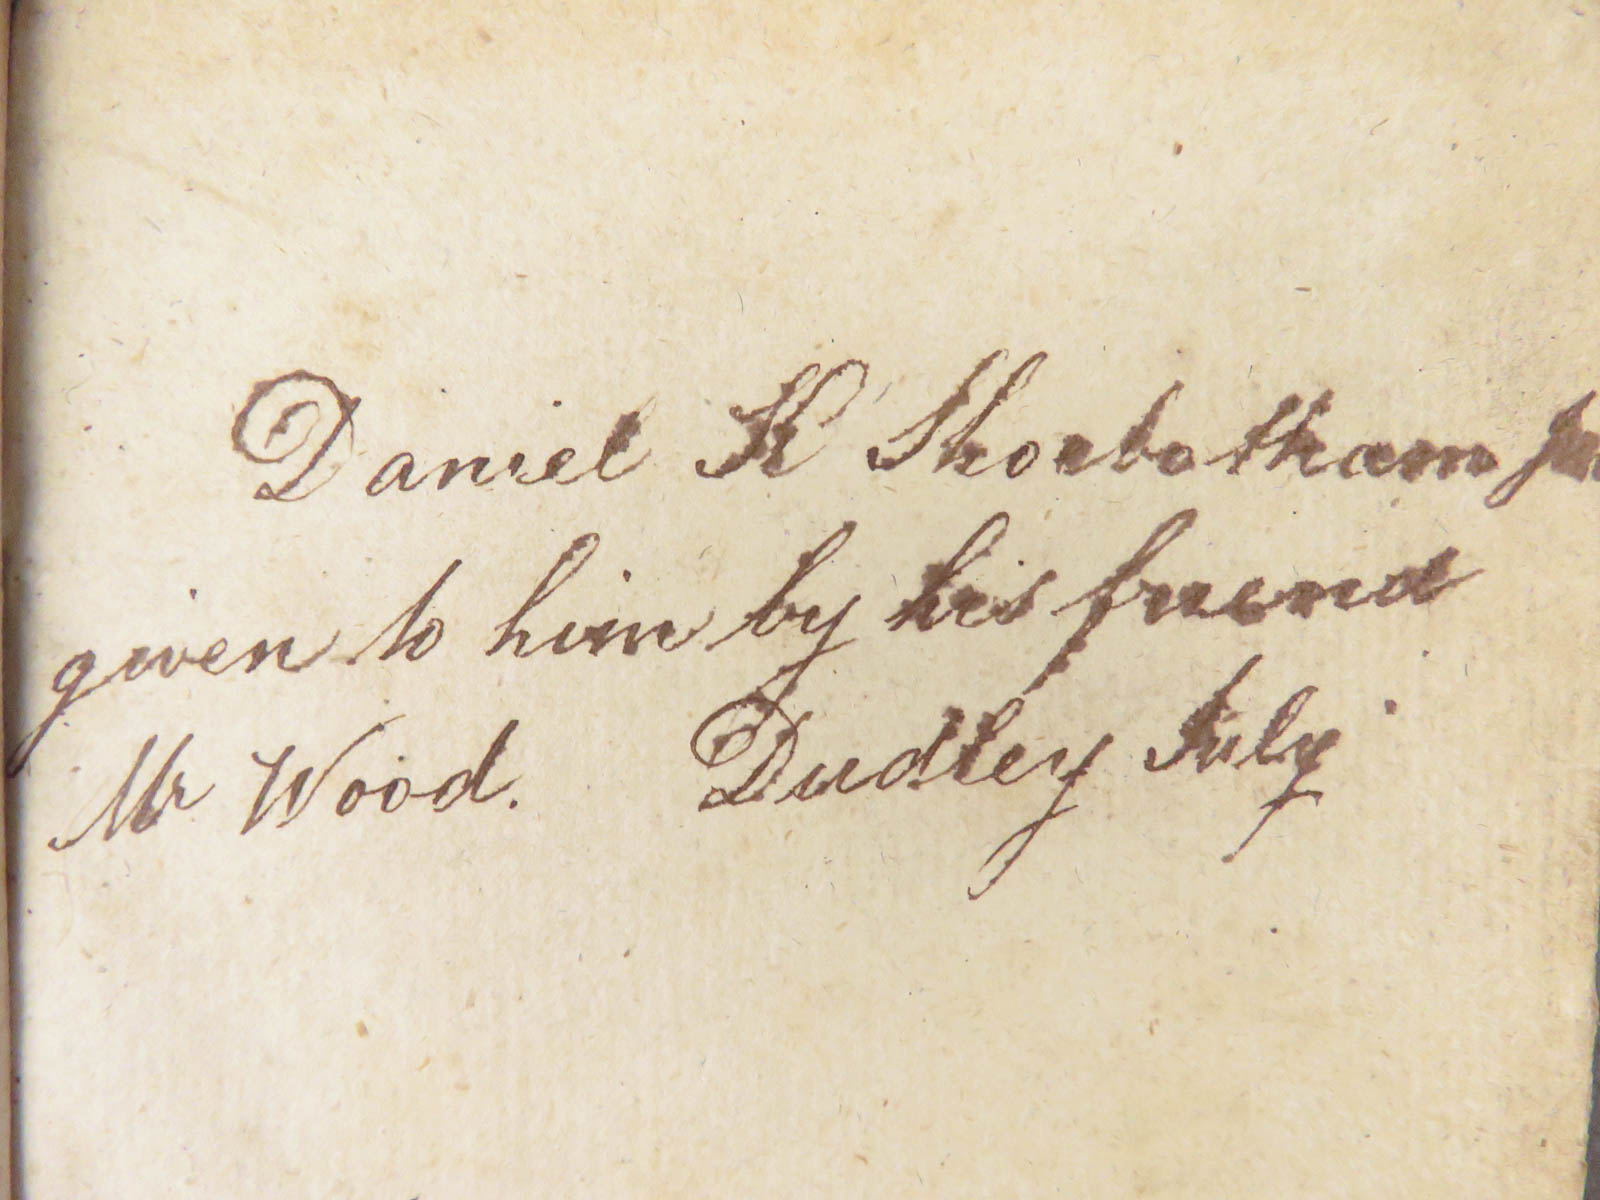 Daniel K Shoebotham Jn
given to him by his friend
Mr Wood. Dudley July